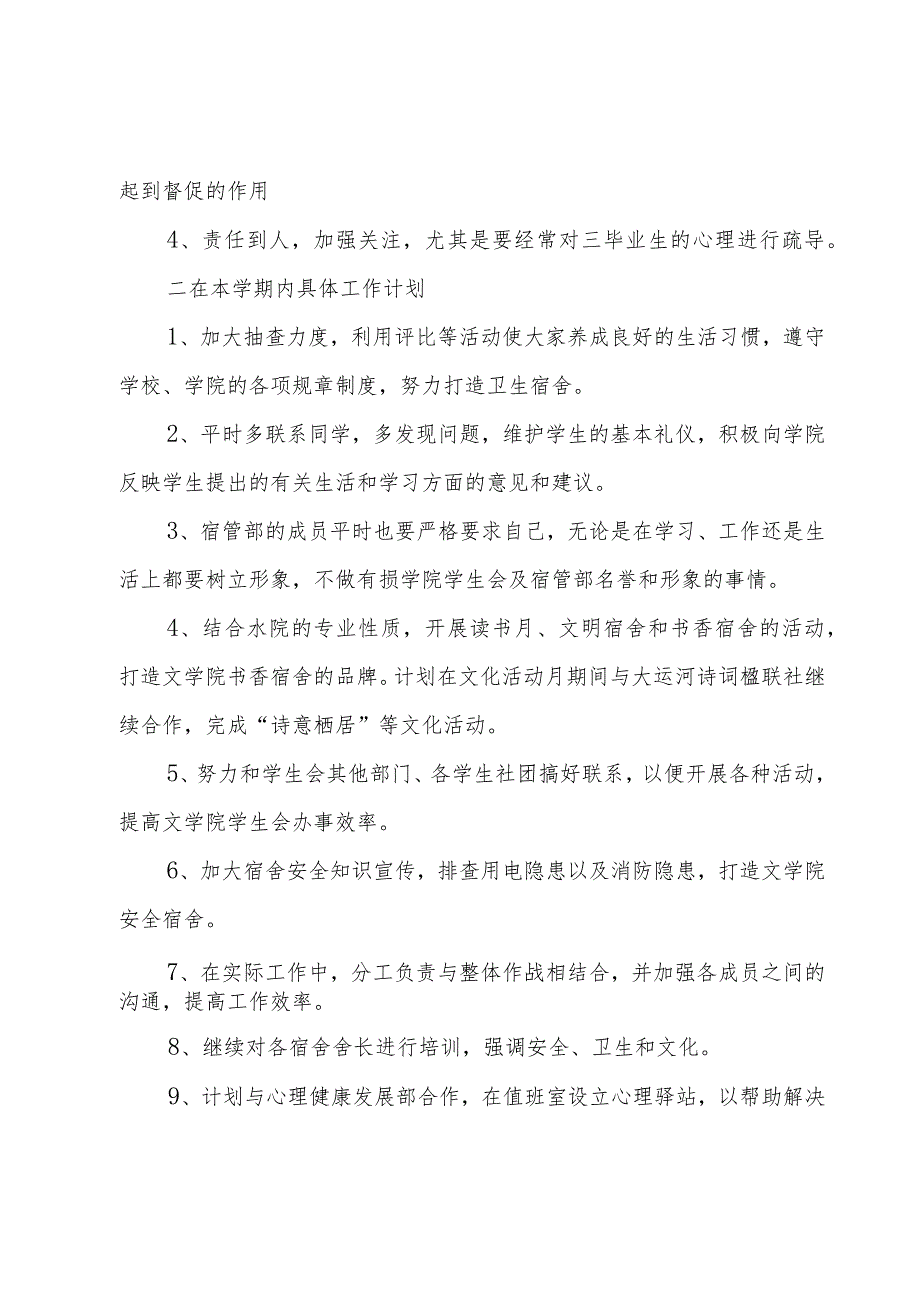 起到督促的作用
4、责任到人，加强关注，尤其是要经常对三毕业生的心理进行疏导。
二在本学期内具体工作计划
1、加大抽查力度，利用评比等活动使大家养成良好的生活习惯，遵守
学校、学院的各项规章制度，努力打造卫生宿舍。
2、平时多联系同学，多发现问题，维护学生的基本礼仪，积极向学院
反映学生提出的有关生活和学习方面的意见和建议。
3、宿管部的成员平时也要严格要求自己，无论是在学习、工作还是生
活上都要树立形象，不做有损学院学生会及宿管部名誉和形象的事情。
4、结合水院的专业性质，开展读书月、文明宿舍和书香宿舍的活动，
打造文学院书香宿舍的品牌。计划在文化活动月期间与大运河诗词楹联社继
续合作，完成“诗意栖居”等文化活动。
5、努力和学生会其他部门、各学生社团搞好联系，以便开展各种活动，
提高文学院学生会办事效率。
6、加大宿舍安全知识宣传，排查用电隐患以及消防隐患，打造文学院
安全宿舍。
7、在实际工作中，分工负责与整体作战相结合，并加强各成员之间的
沟通，提高工作效率。
8、继续对各宿舍舍长进行培训，强调安全、卫生和文化。
9、计划与心理健康发展部合作，在值班室设立心理驿站，以帮助解决